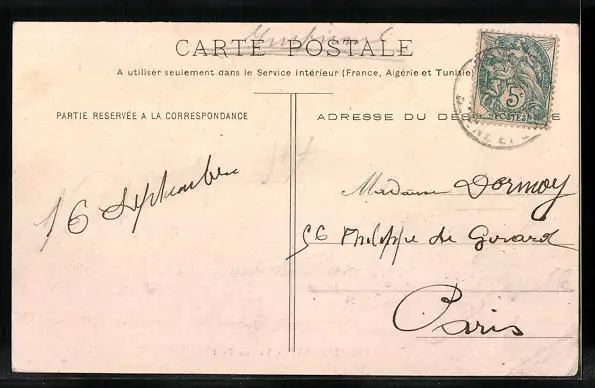 CARTE POSTALE
A utiliser seulement dans le Service intérieur (France, Algérie et Tunisie)
PARTIE RESERVÉE A LA CORRESPONDANCE
ADRESSE DU DES
5c
POSTES
16 Septembre
Madame Dormoy
56 Philippe de Girard
Paris